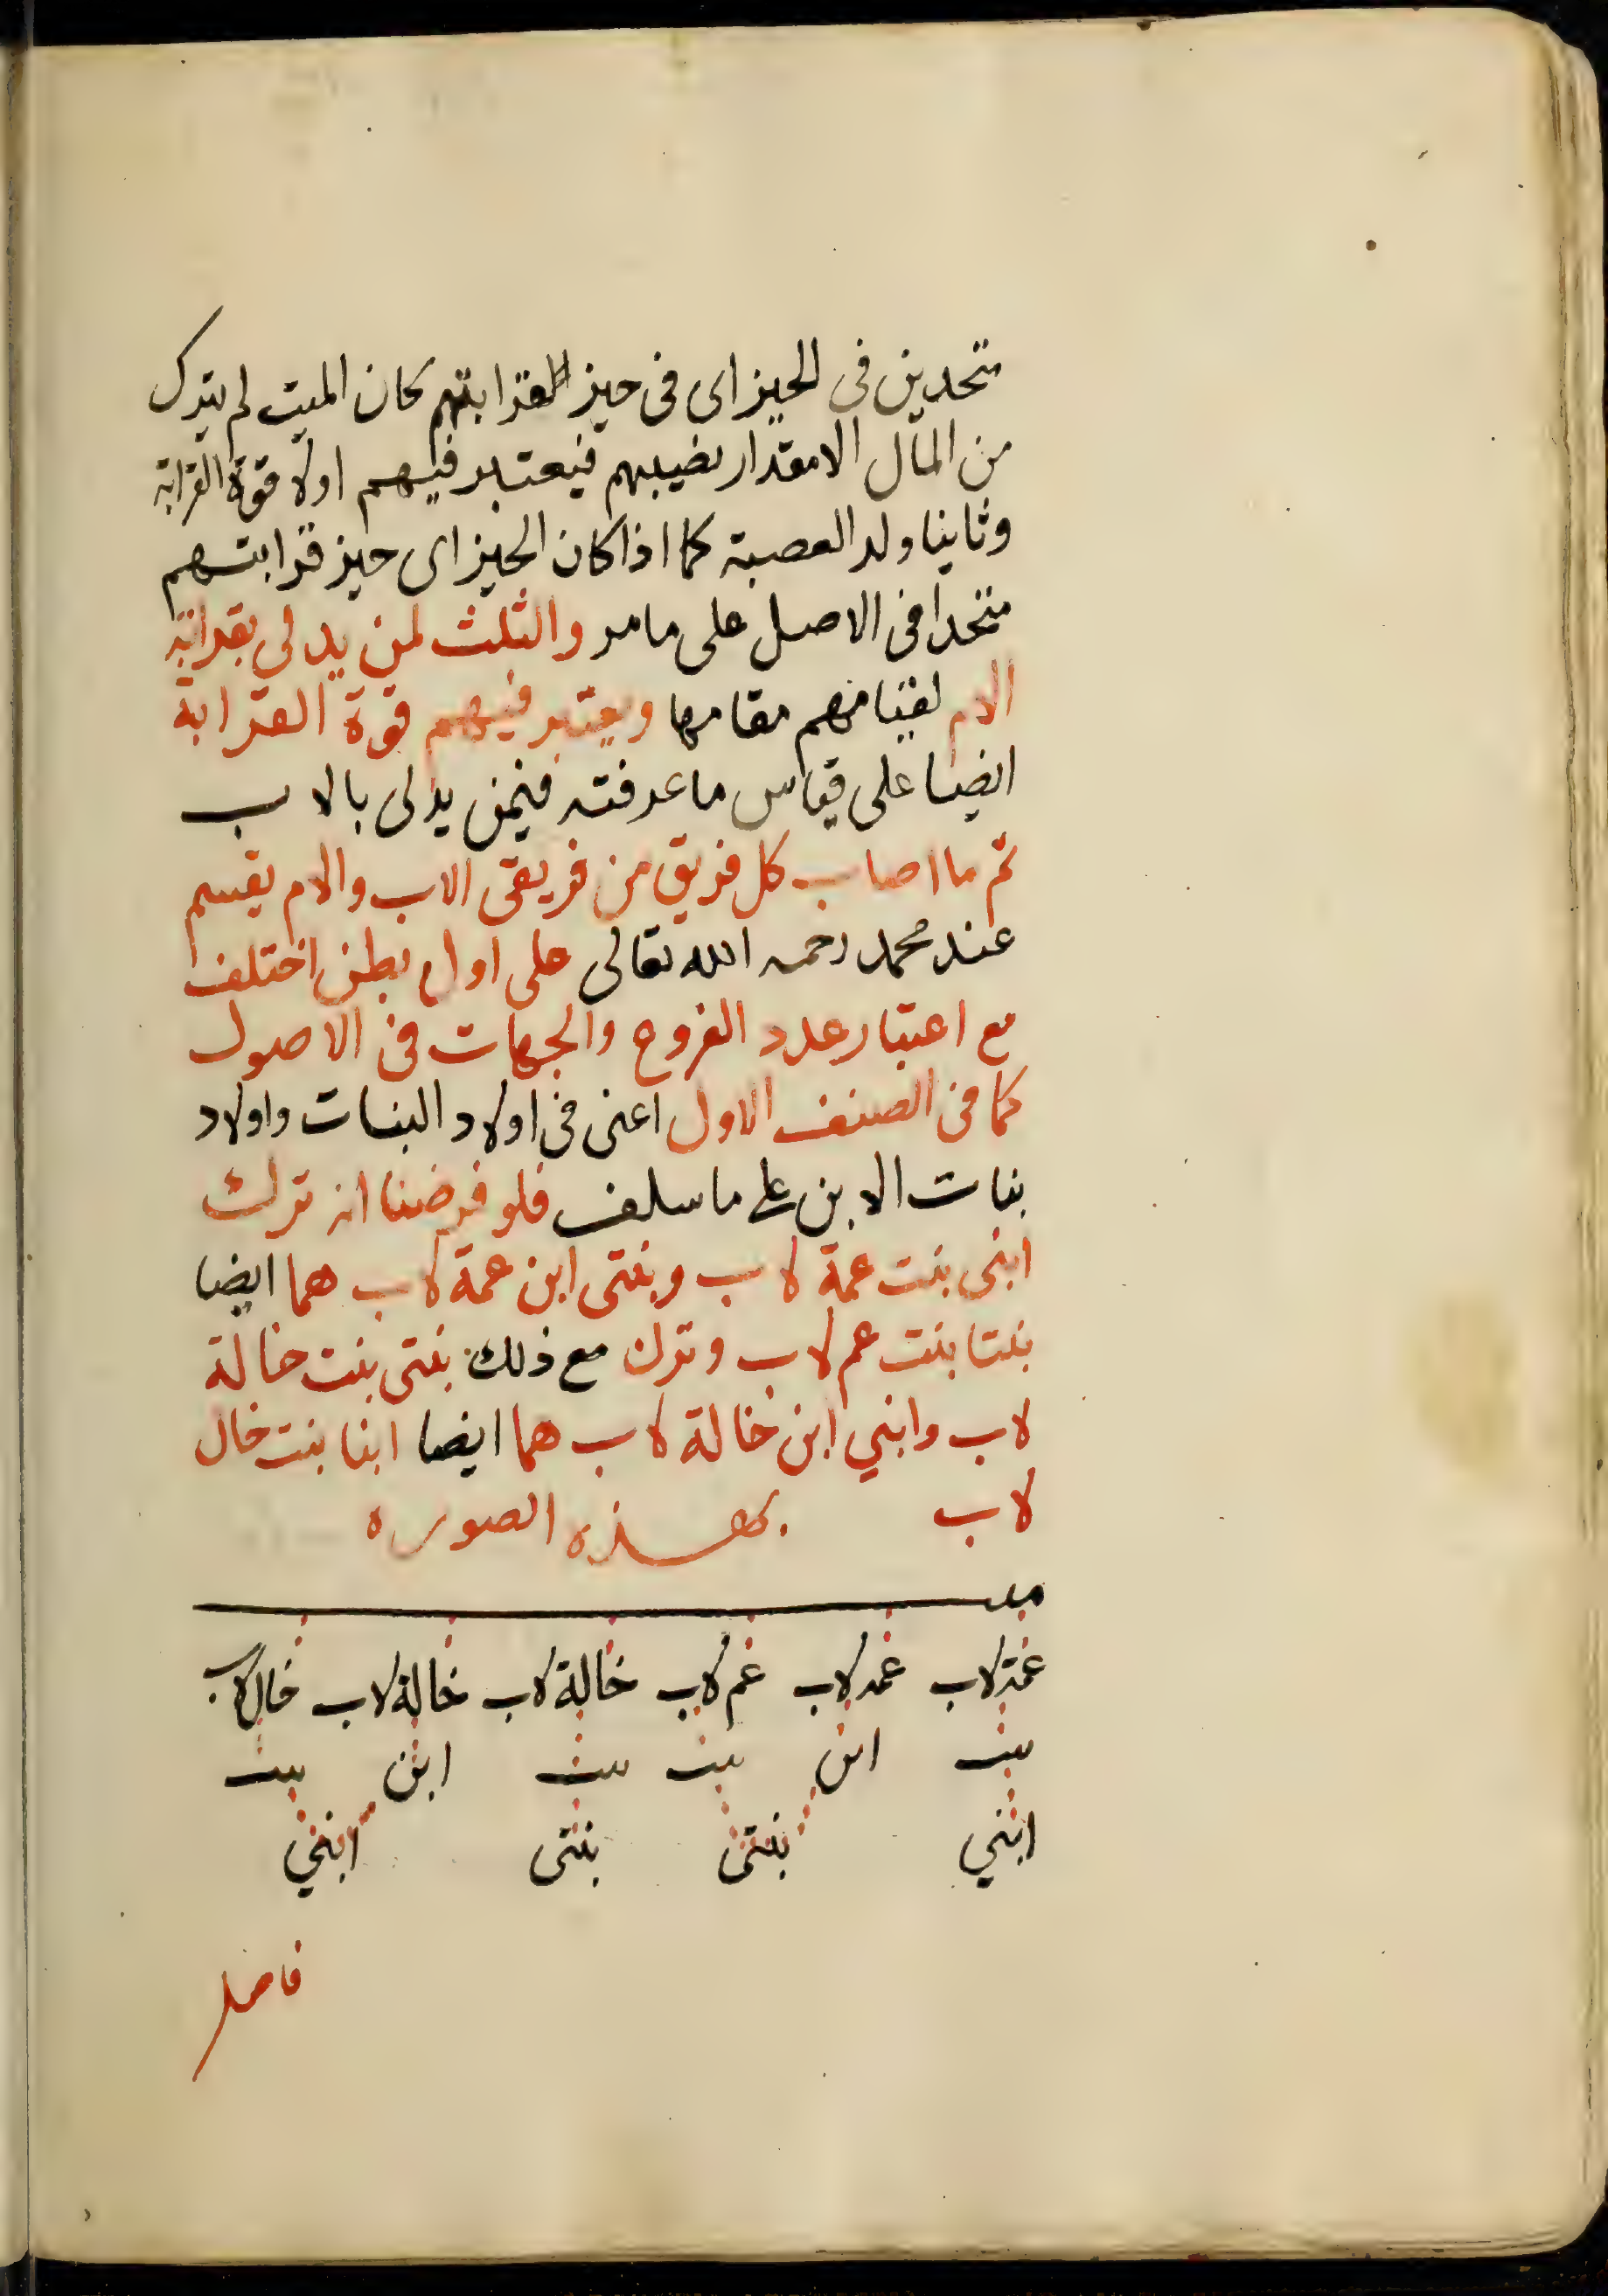 متحدين فى الحيز اى فى حيز القرابتهم كان الميت لم يترك
من المال الا مقدار نصيبهم فيعتبر فيهم اولا قوة القرابة
وثانيا ولد العصبة كما اذا كان الحيز اى حيز قرابتهم
متحدا فى الاصل على ما مر والثلث لمن يدلى بقرابة
الام لقيامهم مقامها ويعتبر فيهم قوة القرابة
ايضا على قياس ما عرفته فيمن يدلى بالاب
ثم ما اصاب كل فريق من فريقى الاب والام يقسم
عند محمد رحمه الله تعالى على اول بطن اختلف
مع اعتبار عدد الفروع والجهات فى الاصول
كما فى الصنف الاول اعنى فى اولاد البنات واولاد
بنات الابن على ما سلف فلو فرضنا انه ترك
ابنى بنت عمة لاب وبنتى ابن عمة لاب هما ايضا
بنتا بنت عم لاب وترك مع ذلك بنتى بنت خالة
لاب وابني ابن خالة لاب هما ايضا ابنا بنت خال
لاب بهذه الصورة
ميت
عمة لاب عمة لاب عم لاب خالة لاب خالة لاب خال لاب
بنت ابن بنت بنت ابن بنت
ابني بنتى بنتى ابني
فاصل